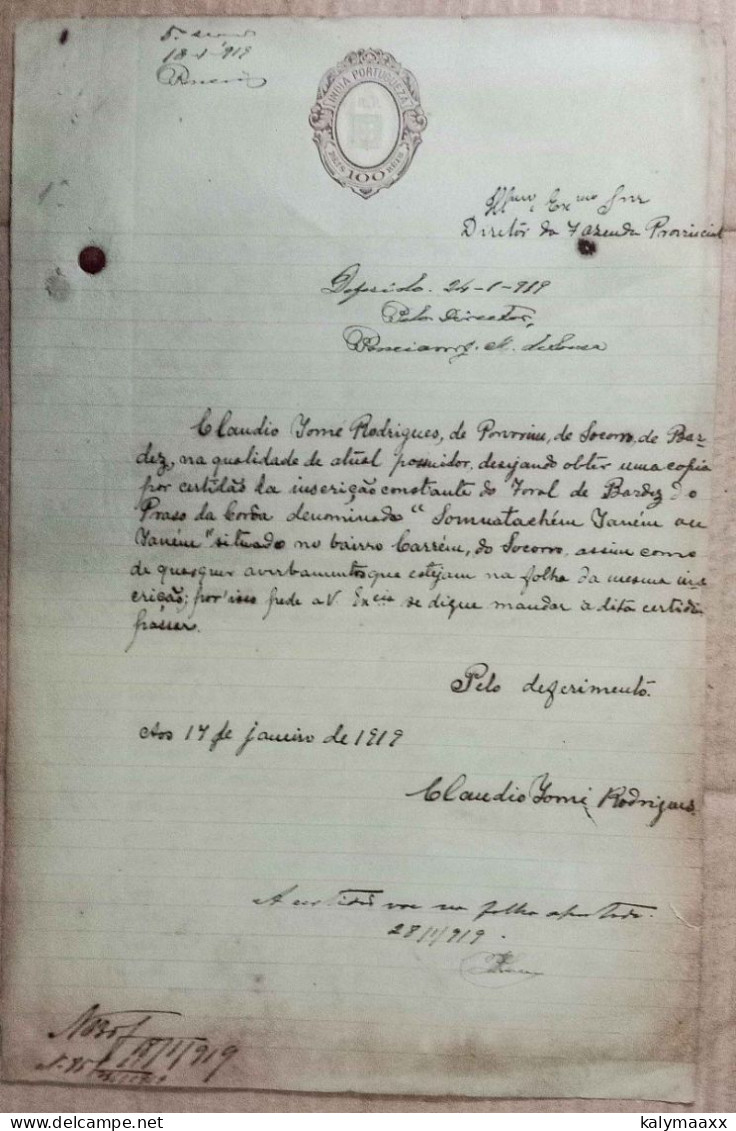 18-1-919
INDIA PORTUGUEZA
100 REIS
Ex.mo Snr
Diretôr da Fazenda Provincial
Deferido. 24-1-919
Pelo Director,
de Souza
Claudio Tomé Rodrigues, de Porvorim, de Socorro, de Bar-
dez, na qualidade de atual possuidor, desejando obter uma copia
por certidão da inscrição constante do Foral de Bardez do
Praso da Corôa denominado "Somnatachém Taném ou
Taném" situado no bairro Carrém, do Socorro, assim como
de quesquer averbamentos que estejam na folha da mesma ins-
crição; por isso pede a V. Excia se digne mandar a dita certidão
passar.
Pelo deferimento.
Aos 17 de janeiro de 1919
Claudio Tomé Rodrigues
A certidão vae na folha apartada.
28/1/919.
18/1/919
kalymaaxx